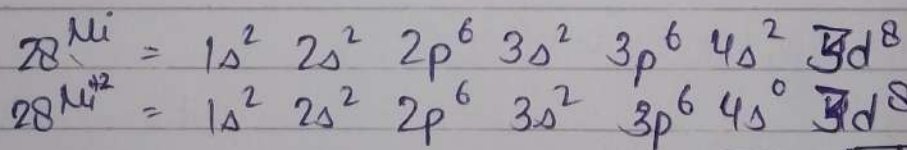 28Ni = 1s² 2s² 2p⁶ 3s² 3p⁶ 4s² 3d⁸
28Ni⁺² = 1s² 2s² 2p⁶ 3s² 3p⁶ 4s⁰ 3d⁸